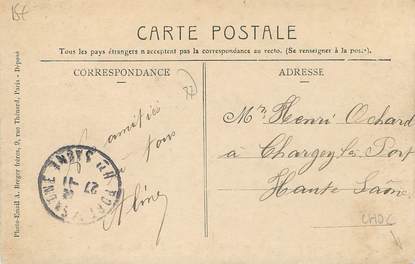 CARTE POSTALE
Tous les pays étrangers n'acceptent pas la correspondance au recto. (Se renseigner à la poste).
CORRESPONDANCE
ADRESSE
amitiés
à tous
Aline
Mr Henri Ochard
à Chargey les Port
Haute Saône
CHOC
Photo-Email A. Breger frères, 9, rue Thénard, Paris - Déposé